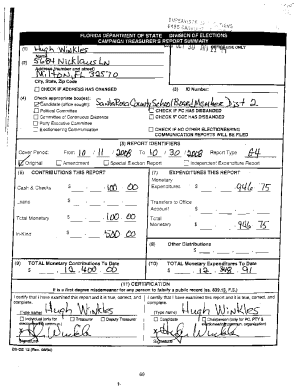 FLORIDA DEPARTMENT OF STATE DIVISION OF ELECTIONS
CAMPAIGN TREASURER'S REPORT SUMMARY
(1) Hugh Winkles
(2) 5684 Nicklaus Ln
Address (number and street)
Milton, FL 32570
City, State, Zip Code
CHECK IF ADDRESS HAS CHANGED (3) ID Number:
(4) Check appropriate box(es):
Candidate (office sought) Santa Rosa County School Board Member Dist 2
Political Committee CHECK IF PC HAS DISBANDED
Committee of Continuous Existence CHECK IF CCE HAS DISBANDED
Party Executive Committee
Electioneering Communication CHECK IF NO OTHER ELECTIONEERING
COMMUNICATION REPORTS WILL BE FILED
(5) REPORT IDENTIFIERS
Cover Period: From 10 / 11 / 2008 To 10 / 30 / 2008 Report Type G4
Original Amendment Special Election Report Independent Expenditure Report
(6) CONTRIBUTIONS THIS REPORT (7) EXPENDITURES THIS REPORT
Cash & Checks $ 100.00 Monetary Expenditures $ 946 75
Loans $ Transfers to Office Account $
Total Monetary $ 100.00 Total Monetary $ 946 75
In-Kind $ 500.00
(8) Other Distributions
$
(9) TOTAL Monetary Contributions To Date (10) TOTAL Monetary Expenditures To Date
$ 12,400.00 $ 12,348.91
(11) CERTIFICATION
It is a first degree misdemeanor for any person to falsify a public record (ss. 839.13, F.S.)
I certify that I have examined this report and it is true, correct, and complete. I certify that I have examined this report and it is true, correct, and complete.
Hugh Winkles Hugh Winkles
(Type name) (Type name)
Treasurer Deputy Treasurer Candidate
Signature
68